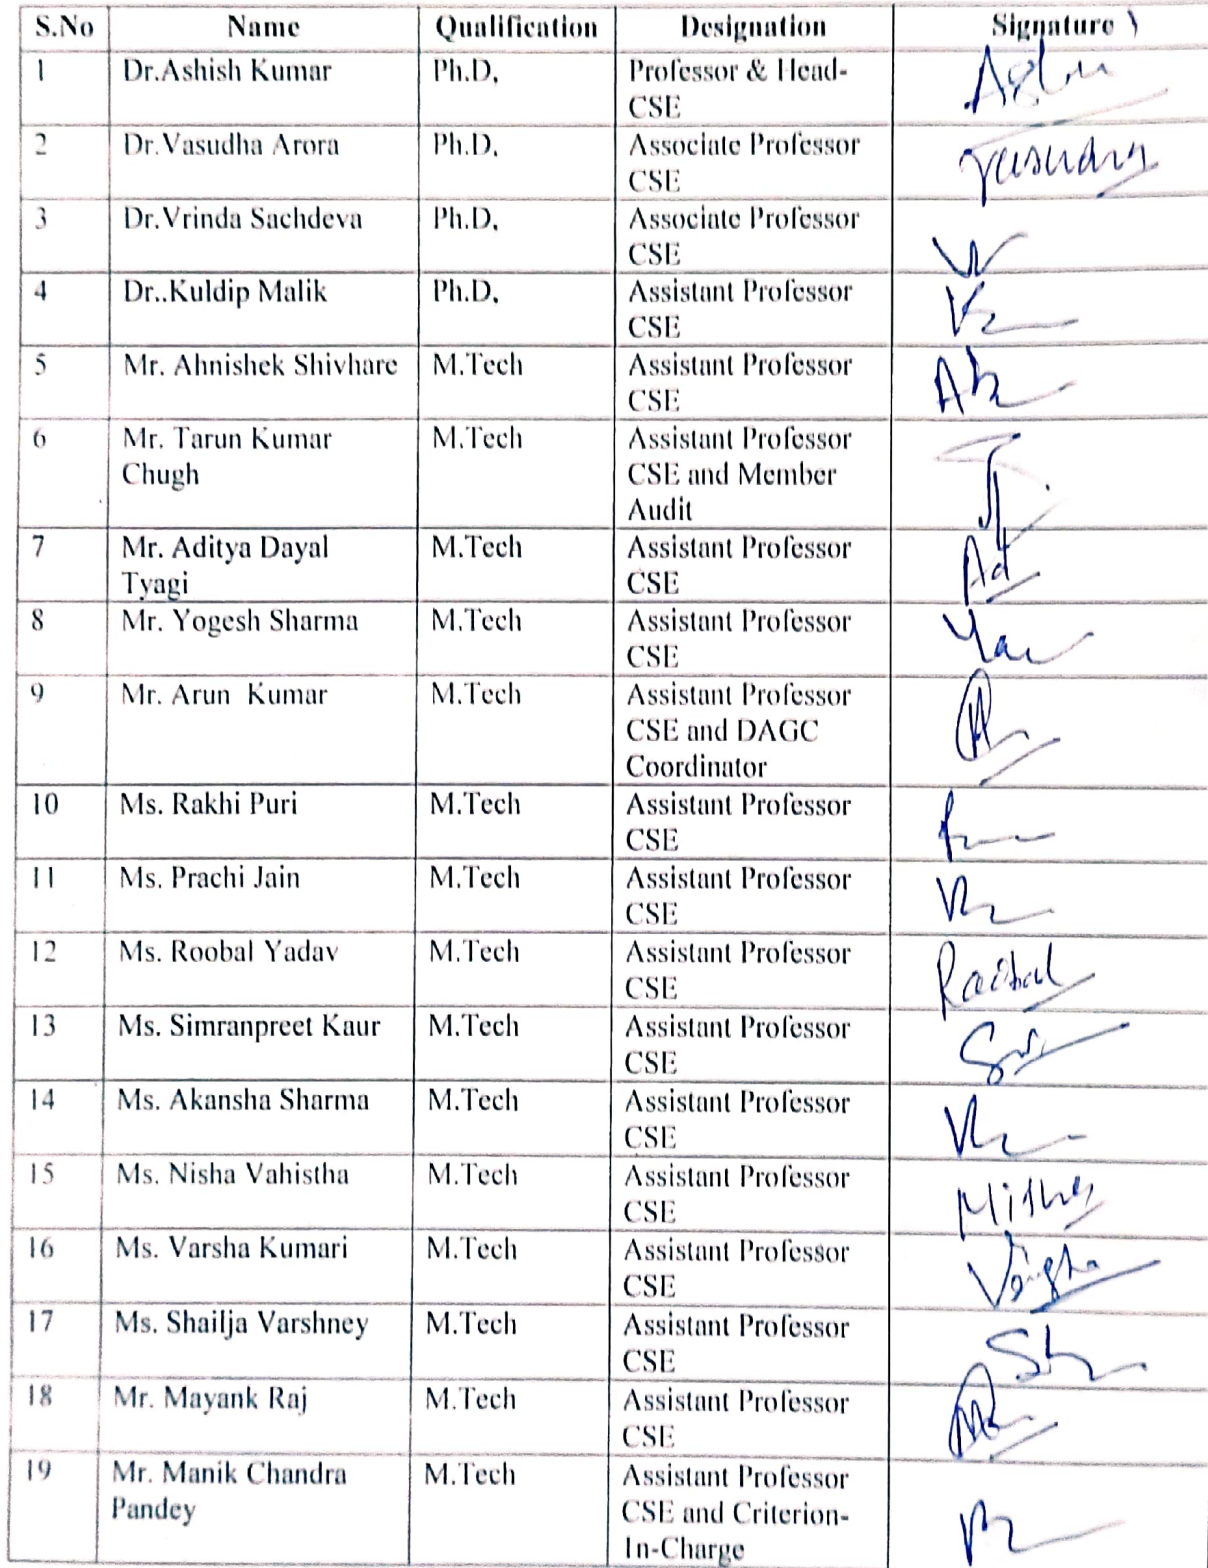 S.No Name Qualification Designation Signature
1 Dr.Ashish Kumar Ph.D, Professor & Head-
CSE
2 Dr.Vasudha Arora Ph.D, Associate Professor
CSE
3 Dr.Vrinda Sachdeva Ph.D, Associate Professor
CSE
4 Dr..Kuldip Malik Ph.D, Assistant Professor
CSE
5 Mr. Ahnishek Shivhare M.Tech Assistant Professor
CSE
6 Mr. Tarun Kumar M.Tech Assistant Professor
Chugh CSE and Member
Audit
7 Mr. Aditya Dayal M.Tech Assistant Professor
Tyagi CSE
8 Mr. Yogesh Sharma M.Tech Assistant Professor
CSE
9 Mr. Arun Kumar M.Tech Assistant Professor
CSE and DAGC
Coordinator
10 Ms. Rakhi Puri M.Tech Assistant Professor
CSE
11 Ms. Prachi Jain M.Tech Assistant Professor
CSE
12 Ms. Roobal Yadav M.Tech Assistant Professor
CSE
13 Ms. Simranpreet Kaur M.Tech Assistant Professor
CSE
14 Ms. Akansha Sharma M.Tech Assistant Professor
CSE
15 Ms. Nisha Vahistha M.Tech Assistant Professor
CSE
16 Ms. Varsha Kumari M.Tech Assistant Professor
CSE
17 Ms. Shailja Varshney M.Tech Assistant Professor
CSE
18 Mr. Mayank Raj M.Tech Assistant Professor
CSE
19 Mr. Manik Chandra M.Tech Assistant Professor
Pandey CSE and Criterion-
In-Charge